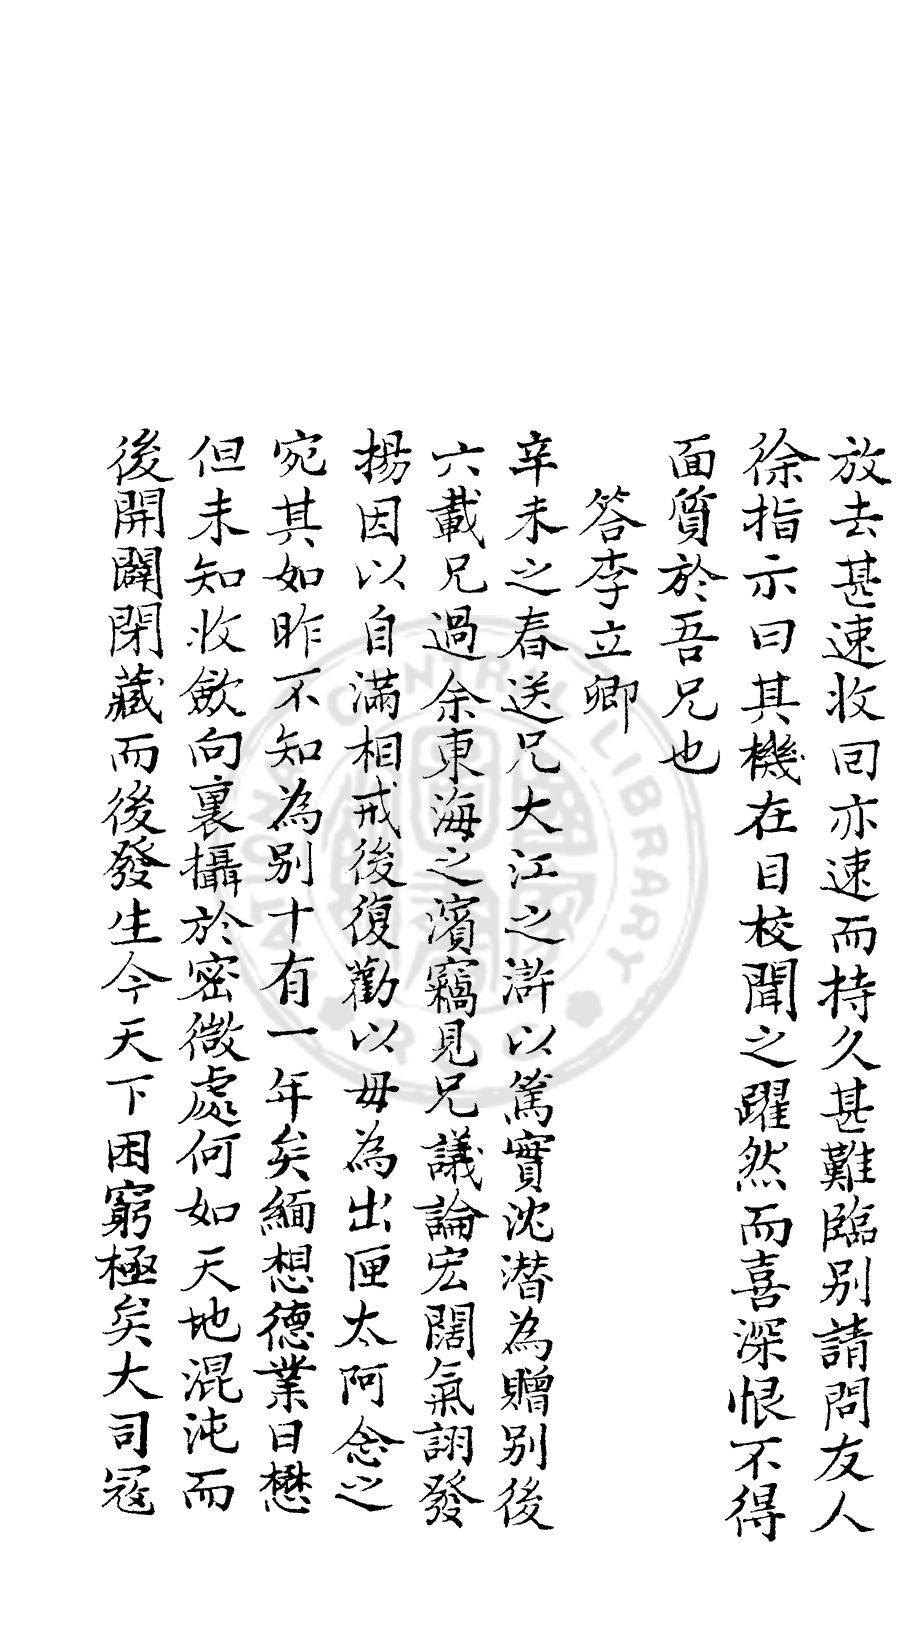 放去甚速收回亦速而持久甚難臨别請問友人
徐指示曰其機在目校聞之躍然而喜深恨不得
面質於吾兄也
答李立卿
辛未之春送兄大江之滸以篤實沈潛為贈别後
六載兄過余東海之濱竊見兄議論宏闊氣詡發
揚因以自滿相戒後復勸以毋為出匣太阿念之
宛其如昨不知為别十有一年矣緬想德業日懋
但未知收歛向裏攝於密微處何如天地混沌而
後開闢閉藏而後發生今天下困窮極矣大司冦
CENTRAL LIBRARY